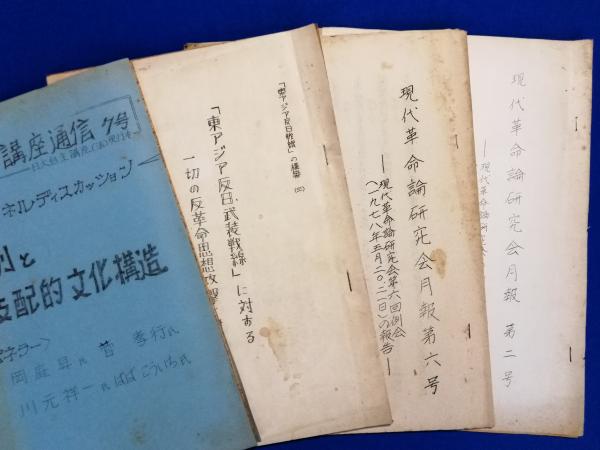 講座通信 7号
日大自主講座
ネルディスカッション
別と
支配的文化構造
岡庭昇氏 菅孝行氏
川元祥一氏 ばばこういち氏
「東アジア反日武装戦線」に対する
一切の反革命思想攻撃
現代革命論研究会月報第六号
―現代革命論研究会第六回例会
(一九七八年五月二〇・二一日)の報告―
現代革命論研究会月報 第二号